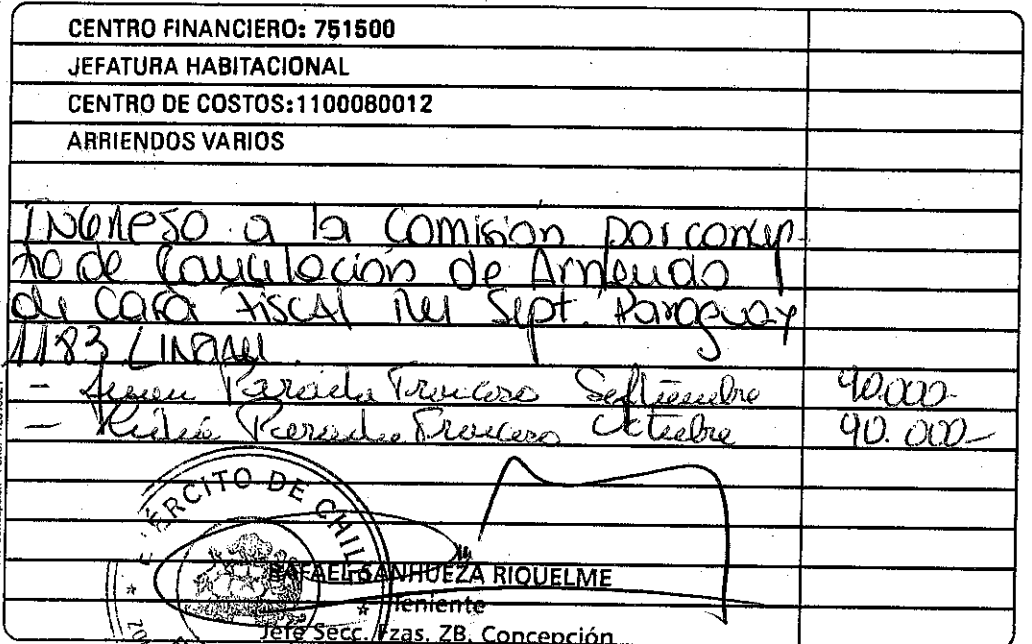 CENTRO FINANCIERO: 751500
JEFATURA HABITACIONAL
CENTRO DE COSTOS:1100080012
ARRIENDOS VARIOS
Ingreso a la Comisión por concep-
to de Cancelación de Arriendo
de Casa Fiscal Sept. Paraguay
1183
- Parada Troncoso Septiembre 90.000-
- Parada Troncoso Octubre 90.000-
EJÉRCITO DE CHILE
RAFAEL SANHUEZA RIQUELME
Teniente
Jefe Secc. Fzas. ZB. Concepción